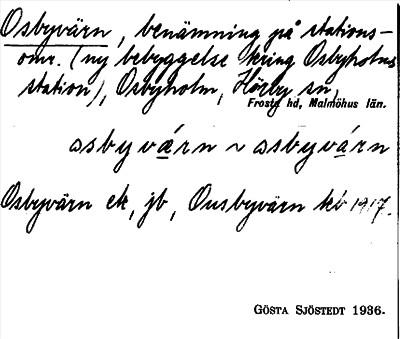 Osbyvärn, benämning på stations-
omr. (ny bebyggelse kring Osbyholms
station), Osbyholm, Hörby sn,
Frosta hd, Malmöhus län.
asbyværn ~ asbyvärn
Osbyvärn ek, jb, Ousbyvärn kb 1917.
GÖSTA SJÖSTEDT 1936.